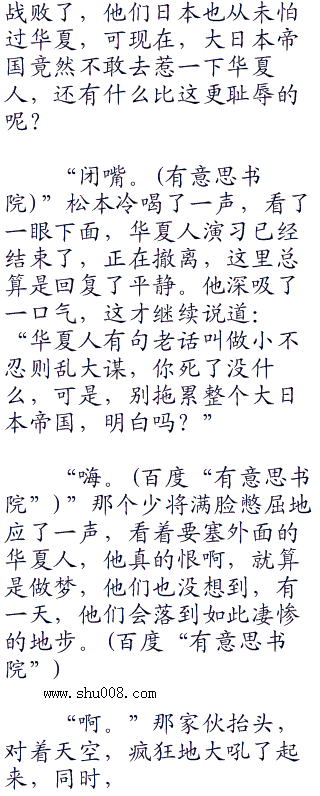 战败了，他们日本也从未怕
过华夏，可现在，大日本帝
国竟然不敢去惹一下华夏
人，还有什么比这更耻辱的
呢？
“闭嘴。(有意思书
院)”松本冷喝了一声，看了
一眼下面，华夏人演习已经
结束了，正在撤离，这里总
算是回复了平静。他深吸了
一口气，这才继续说道：
“华夏人有句老话叫做小不
忍则乱大谋，你死了没什
么，可是，别拖累整个大日
本帝国，明白吗？”
“嗨。(百度“有意思书
院”)”那个少将满脸憋屈地
应了一声，看着要塞外面的
华夏人，他真的恨啊，就算
是做梦，他们也没想到，有
一天，他们会落到如此凄惨
的地步。(百度“有意思书
院”)
www.shu008.com
“啊。”那家伙抬头，
对着天空，疯狂地大吼了起
来，同时，